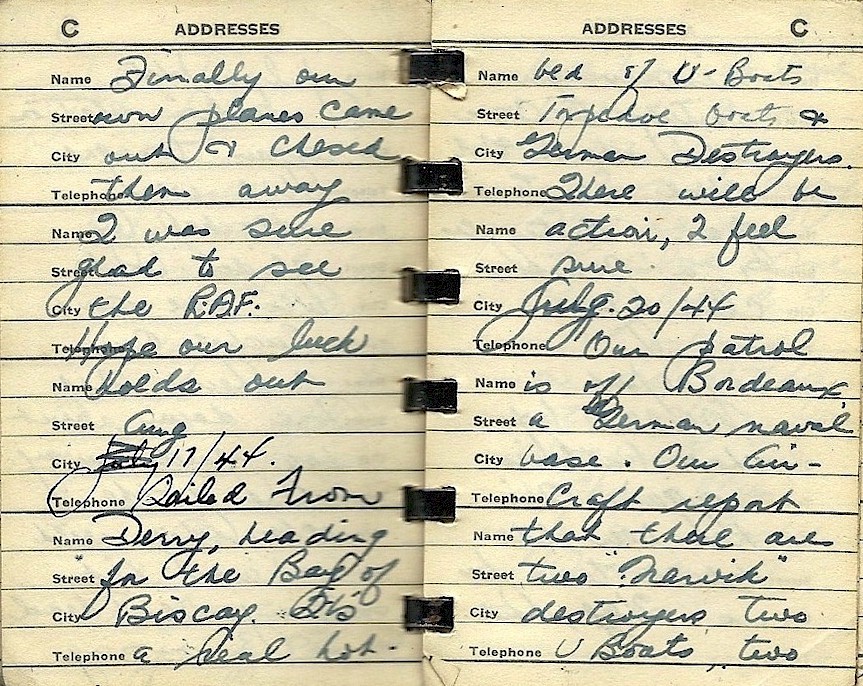 C ADDRESSES
Name Finally our
Street own planes came
City out & chased
Telephone them away
Name I was sure
Street glad to see
City the R.A.F.
Telephone Hope our luck
Name holds out
Street Aug
City July 17/44.
Telephone Sailed From
Name Derry, heading
Street for the Bay of
City Biscay. It's
Telephone a real hot-
ADDRESSES C
Name bed of U-Boats
Street Torpedoe boats &
City German Destroyers.
Telephone There will be
Name action, I feel
Street sure.
City 20/44
Telephone Our patrol
Name is off Bordeaux,
Street a German naval
City base. Our Air-
Telephone craft report
Name that there are
Street two "Narvik"
City destroyers two
Telephone U Boats, two